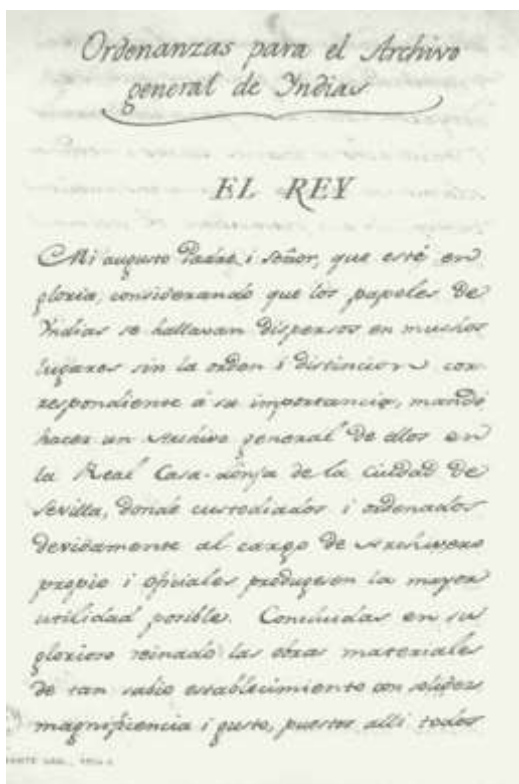 Ordenanzas para el Archivo
general de Yndias
EL REY
Mi augusto Padre i señor, que esté en
gloria, considerando que los papeles de
Yndias se hallavan dispersos en muchos
lugares sin la orden i distincion cor
respondiente á su importancia, mandó
hacer un Archivo general de ellos en
la Real Casa-lonja de la ciudad de
Sevilla, donde custodiados i ordenados
devidamente al cargo de Archivero
propio i oficiales produgesen la mayor
utilidad posible. Concluidas en su
glorioso reinado las obras materiales
de tan sabio establecimiento con solidez,
magnificencia i gusto, puestos alli todos